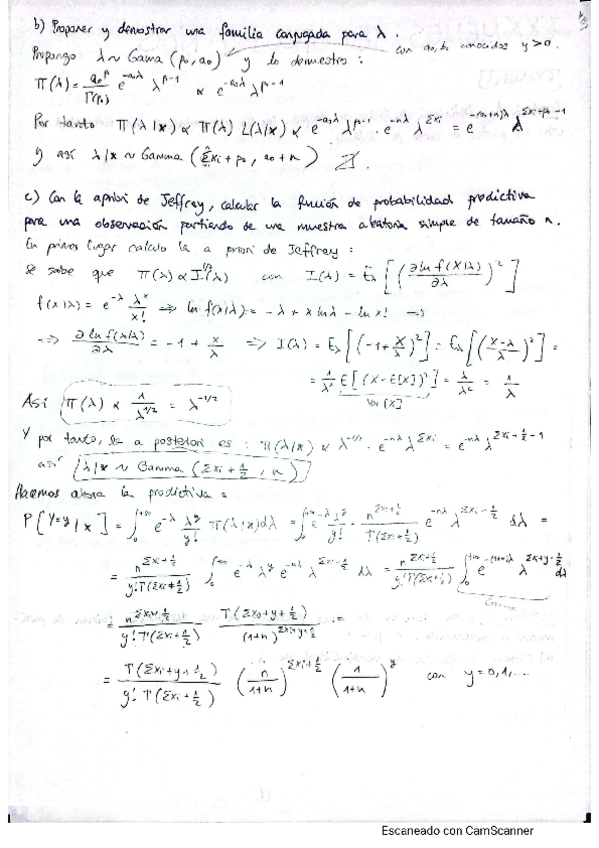 b) Proponer y demostrar una familia conjugada para λ.
Propongo λ ~ Gamma (p₀, a₀) y lo demuestro: con a₀, p₀ conocidos y > 0.
Π(λ) = a₀^p₀/Γ(p₀) e^(-a₀λ) λ^(p₀-1) ∝ e^(-a₀λ) λ^(p₀-1)
Por tanto Π(λ|x) ∝ Π(λ) L(λ|x) ∝ e^(-a₀λ) λ^(p₀-1) · e^(-nλ) λ^(Σxi) = e^(-(a₀+n)λ) λ^(Σxi+p₀-1)
y así λ|x ~ Gamma (Σxi + p₀, a₀ + n)
c) Con la apriori de Jeffrey, calcular la función de probabilidad predictiva
para una observación partiendo de una muestra aleatoria simple de tamaño n.
En primer lugar calculo la a priori de Jeffrey:
Se sabe que Π(λ) ∝ I^(1/2)(λ) con I(λ) = E_λ[(∂ ln f(X|λ)/∂λ)²]
f(x|λ) = e^(-λ) λ^x/x! ⇒ ln f(x|λ) = -λ + x ln λ - ln x! ⇒
⇒ ∂ ln f(x|λ)/∂λ = -1 + x/λ ⇒ I(λ) = E_λ[(-1 + X/λ)²] = E_λ[((X-λ)/λ)²] =
= 1/λ² E[(X - E[X])²] = λ/λ² = 1/λ
Var[X]
Así Π(λ) ∝ 1/λ^(1/2) = λ^(-1/2)
Y por tanto, la a posteriori es: Π(λ|x) ∝ λ^(-1/2) · e^(-nλ) λ^(Σxi) = e^(-nλ) λ^(Σxi+1/2-1)
así λ|x ~ Gamma (Σxi + 1/2, n)
Hacemos ahora la predictiva:
P[Y=y|x] = ∫₀^(+∞) e^(-λ) λ^y/y! Π(λ|x)dλ = ∫₀^(+∞) e^(-λ) λ^y/y! · n^(Σxi+1/2)/Γ(Σxi+1/2) e^(-nλ) λ^(Σxi-1/2) dλ =
= n^(Σxi+1/2)/(y! Γ(Σxi+1/2)) ∫₀^(+∞) e^(-λ) λ^y e^(-nλ) λ^(Σxi-1/2) dλ = n^(Σxi+1/2)/(y! Γ(Σxi+1/2)) ∫₀^(+∞) e^(-(n+1)λ) λ^(Σxi+y-1/2) dλ
Gamma
= n^(Σxi+1/2)/(y! Γ(Σxi+1/2)) Γ(Σxi+y+1/2)/(1+n)^(Σxi+y+1/2) =
= Γ(Σxi+y+1/2)/(y! Γ(Σxi+1/2)) (n/(1+n))^(Σxi+1/2) (1/(1+n))^y con y=0,1,...
Escaneado con CamScanner